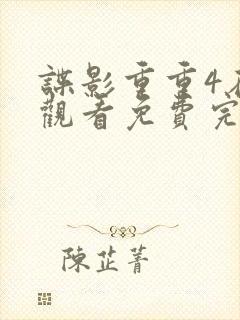 諜影重重4
觀看免費完
陳芷菁